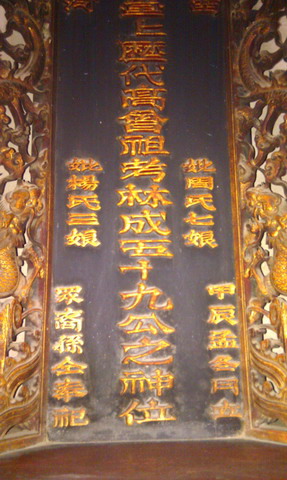 妣周氏七娘
甲辰孟冬月立
堂上歷代高曾祖考林成五十九公之神位
妣楊氏三娘
眾裔孫仝奉祀